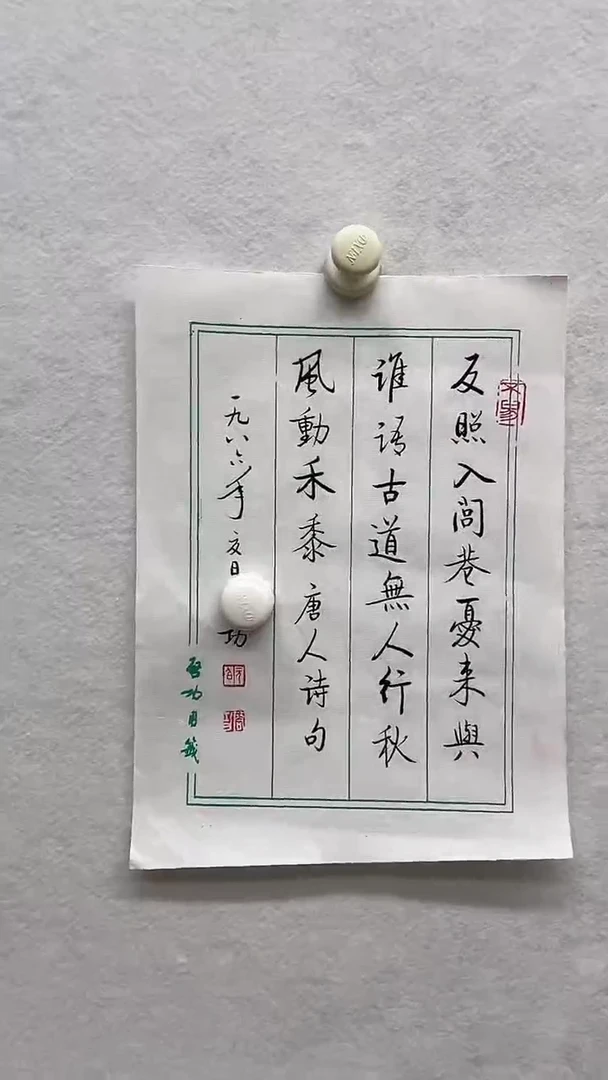 反照入闾巷憂来與
谁语古道無人行秋
風動禾黍唐人诗句
一九八六年夏日
功
启功用箋